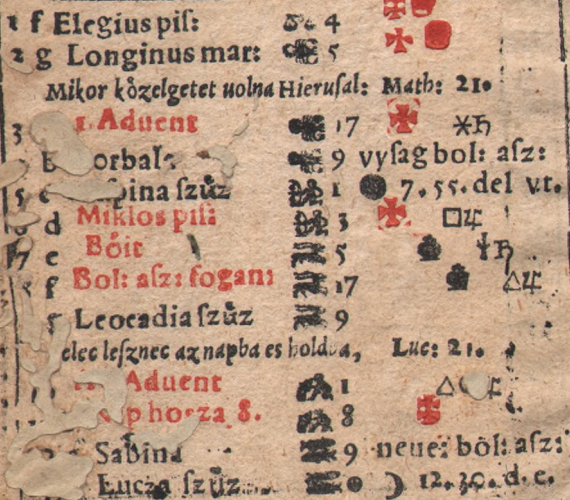 1 f Elegius piſ: 4
2 g Longinus mar: 5
Mikor kòzelgetet uolna Hieruſal: Math: 21.
3 1. Aduent 17 ⚹♄
9 vyſag bol: aſz:
ſzůz 1 7.55. del v.t.
d Miklos piſ: 3 □♃
7 e 5 ♄
5 f Bol: aſz: fogan: 17 △♃
g Leocadia ſzůz 9
elec leſznec az napba es holdba, Luc: 21.
Aduent 1 △
8. 8
Sabina 9 neue: bòl: aſz:
Lucza ſzůz ☽ 12.30. d.e.